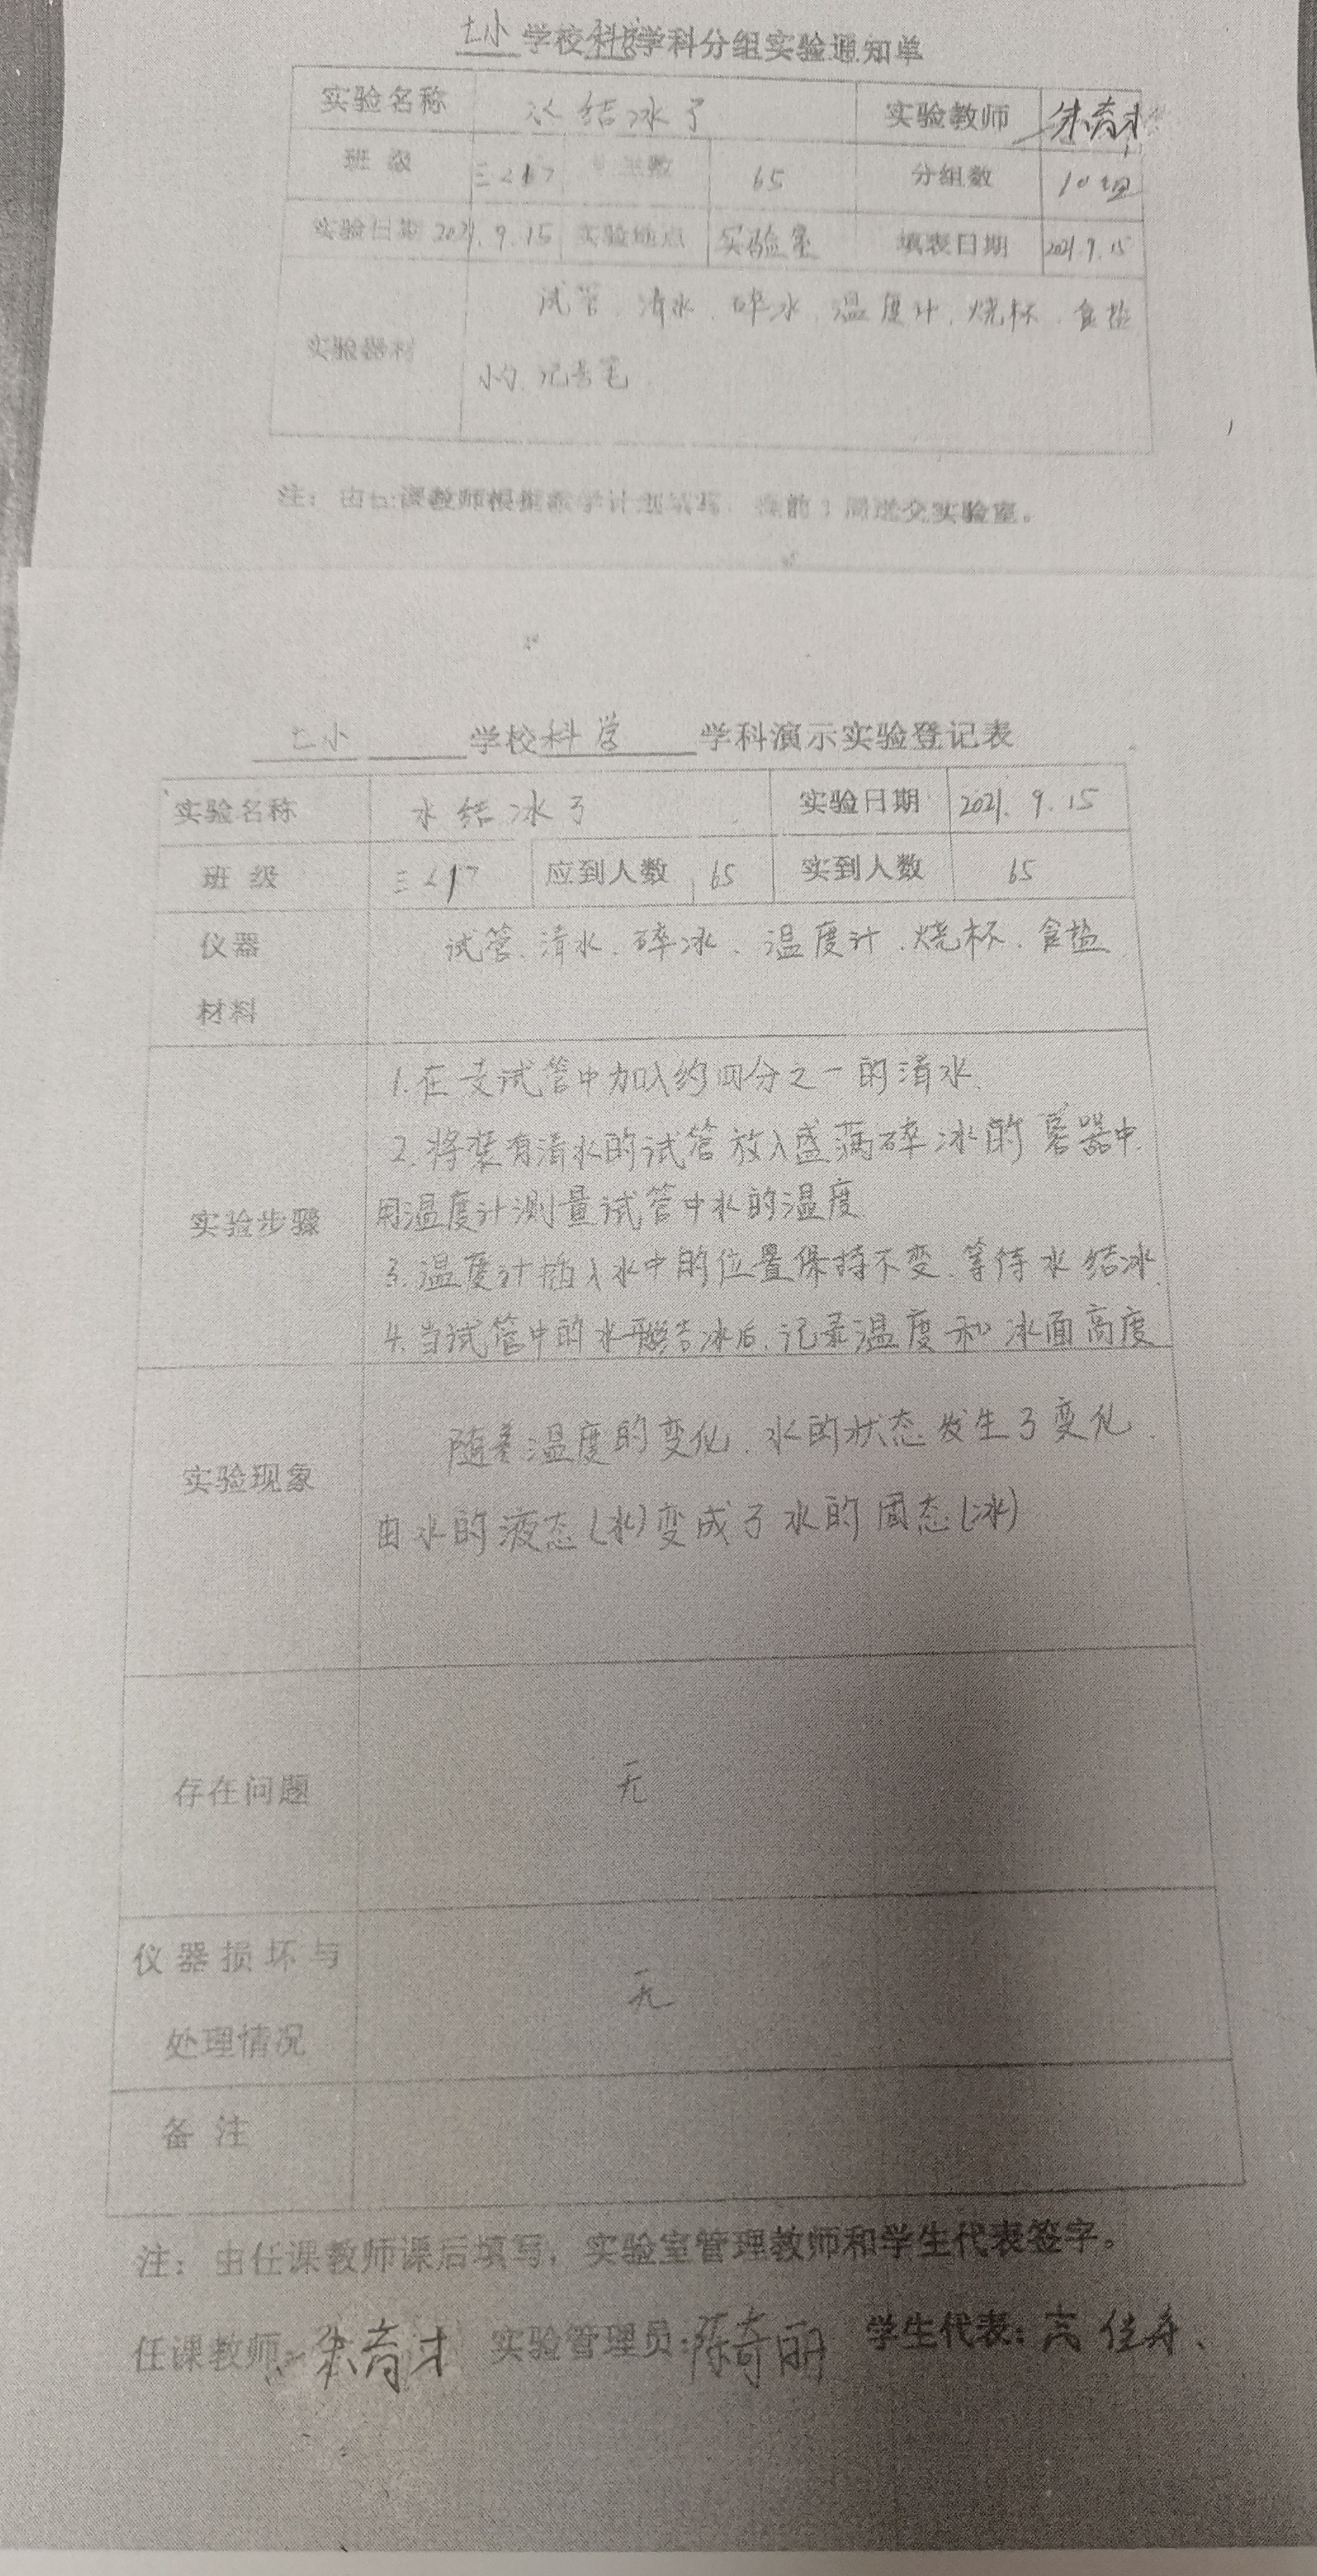 七小 学校科学学科分组实验通知单
实验名称 水结冰了 实验教师 朱育才
班 级 三<1> 学生数 65 分组数 10组
实验日期 2021.9.15 实验地点 实验室 填表日期 2021.9.15
实验器材 试管、清水、碎冰、温度计、烧杯、食盐
小勺、记号笔
注：由任课教师根据教学计划填写，提前1周送交实验室。
七小 学校科学 学科演示实验登记表
实验名称 水结冰了 实验日期 2021.9.15
班 级 三<1> 应到人数 65 实到人数 65
仪器 试管、清水、碎冰、温度计、烧杯、食盐
材料
1.在支试管中加入约四分之一的清水、
2.将装有清水的试管放入盛满碎冰的容器中、
实验步骤 用温度计测量试管中水的温度
3.温度计插入水中的位置保持不变、等待水结冰、
4.当试管中的水开始结冰后、记录温度和冰面高度
随着温度的变化、水的状态发生了变化、
实验现象
由水的液态(水)变成了水的固态(冰)
存在问题 无
仪器损坏与
处理情况 无
备 注
注：由任课教师课后填写，实验室管理教师和学生代表签字。
任课教师：朱育才 实验管理员：陈奇丽 学生代表：高佳